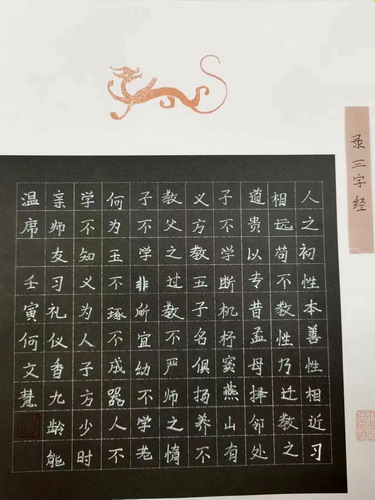 录三字经
人之初性本善性相近习
相远苟不教性乃迁教之
道贵以专昔孟母择邻处
子不学断机杼窦燕山有
义方教五子名俱扬养不
教父之过教不严师之惰
子不学非所宜幼不学老
何为玉不琢不成器人不
学不知义为人子方少时
亲师友习礼仪香九龄能
温席 壬寅何文慧